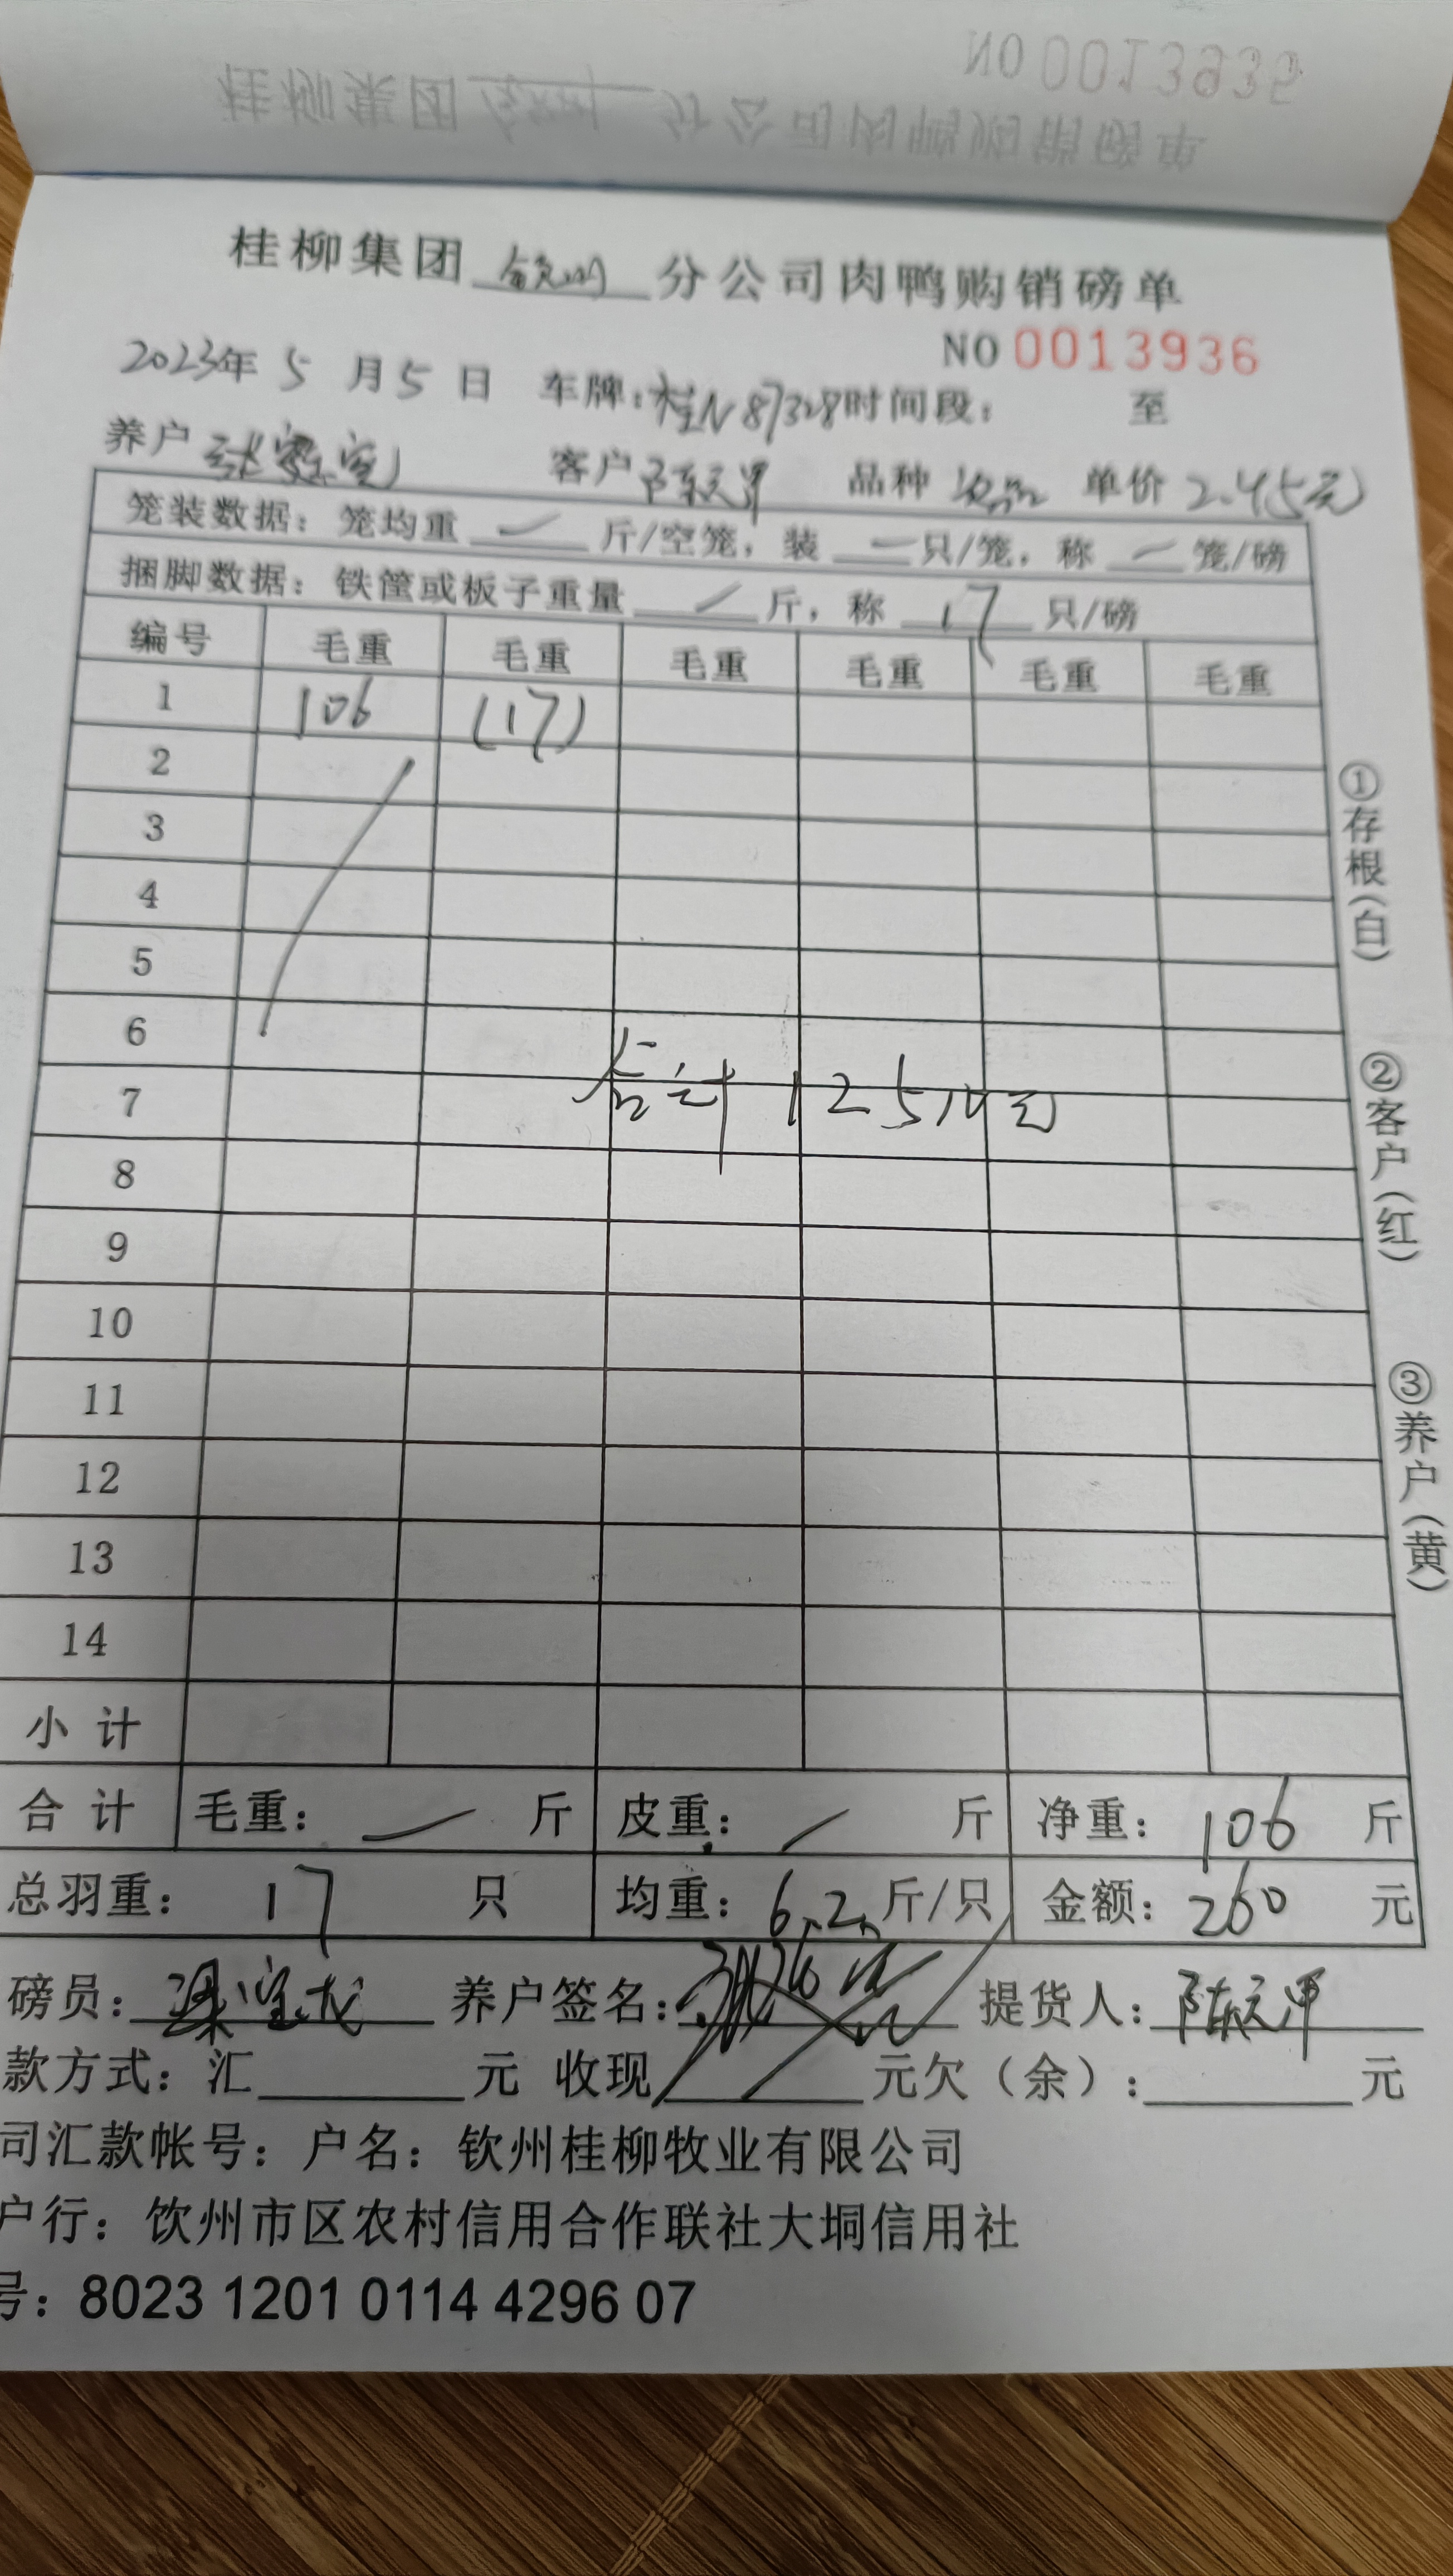 桂柳集团 钦州 分公司肉鸭购销磅单
NO 0013936
2023年 5 月 5 日 车牌：桂N 87328 时间段： 至
养户 客户 陈天甲 品种 次品 单价 2.45元
笼装数据：笼均重 — 斤/空笼，装 — 只/笼，称 — 笼/磅
捆脚数据：铁筐或板子重量 — 斤，称 17 只/磅
编号 毛重 毛重 毛重 毛重 毛重 毛重
1 106 (17)
2
3
4
5
6
合计 12514元
7
8
9
10
11
12
13
14
小计
合计 毛重： — 斤 皮重： — 斤 净重： 106 斤
总羽重： 17 只 均重： 6.2 斤/只 金额： 260 元
磅员： 养户签名： 提货人： 陈天甲
款方式：汇 元 收现 元欠（余）： 元
司汇款帐号：户名：钦州桂柳牧业有限公司
户行：饮州市区农村信用合作联社大垌信用社
号：8023 1201 0114 4296 07
①存根（白） ②客户（红） ③养户（黄）